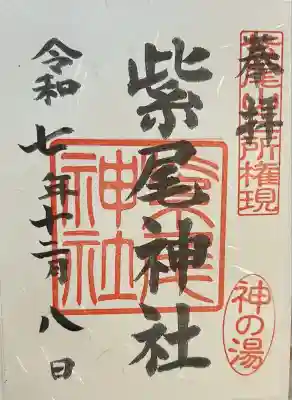 奉拝
紫尾山三所権現
紫尾神社
紫尾神社
神の湯
令和七年十二月八日